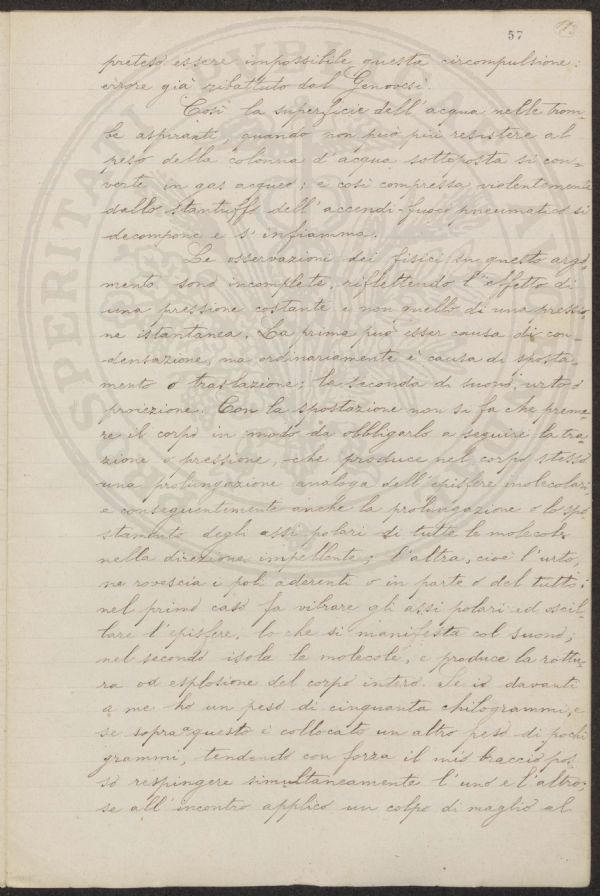 57
113
preteso essere impossibile questa circompulsione:
errore già ribattuto dal Genovesi.
Così la superficie dell'acqua nelle trom-
be aspiranti, quando non può più resistere al
peso della colonna d'acqua sottoposta si con-
verte in gas acqueo; e così compressa violentemente
dallo stantuffo dell'accendi-fuoco pneumatico si
decompone e s'infiamma.
Le osservazioni dei fisici su questo argo-
mento sono incomplete, riflettendo l'effetto di
una pressione costante e non quello di una pressio-
ne istantanea. La prima può esser causa di con-
densazione, ma ordinariamente è causa di sposta-
mento o traslazione; la seconda di suono, urto o
proiezione. Con la spostazione non si fa che preme-
re il corpo in modo da obbligarlo a seguire la tra-
zione o pressione, che produce nel corpo stesso
una prolungazione analoga dell'episfere molecolari
e conseguentemente anche la prolungazione o lo spo-
stamento degli assi polari di tutte le molecole
nella direzione impellente; l'altra, cioè l'urto,
ne rovescia i poli aderenti o in parte o del tutto;
nel primo caso fa vibrare gli assi polari ed oscil-
lare l'episfere, lo che si manifesta col suono;
nel secondo isola le molecole, e produce la rottu-
ra od esplosione del corpo intero. Se io davanti
a me ho un peso di cinquanta chilogrammi, e
se sopra a questo è collocato un altro peso di pochi
grammi, tendendo con forza il mio braccio pos-
so respingere simultaneamente l'uno e l'altro;
se all'incontro applico un colpo di maglio al